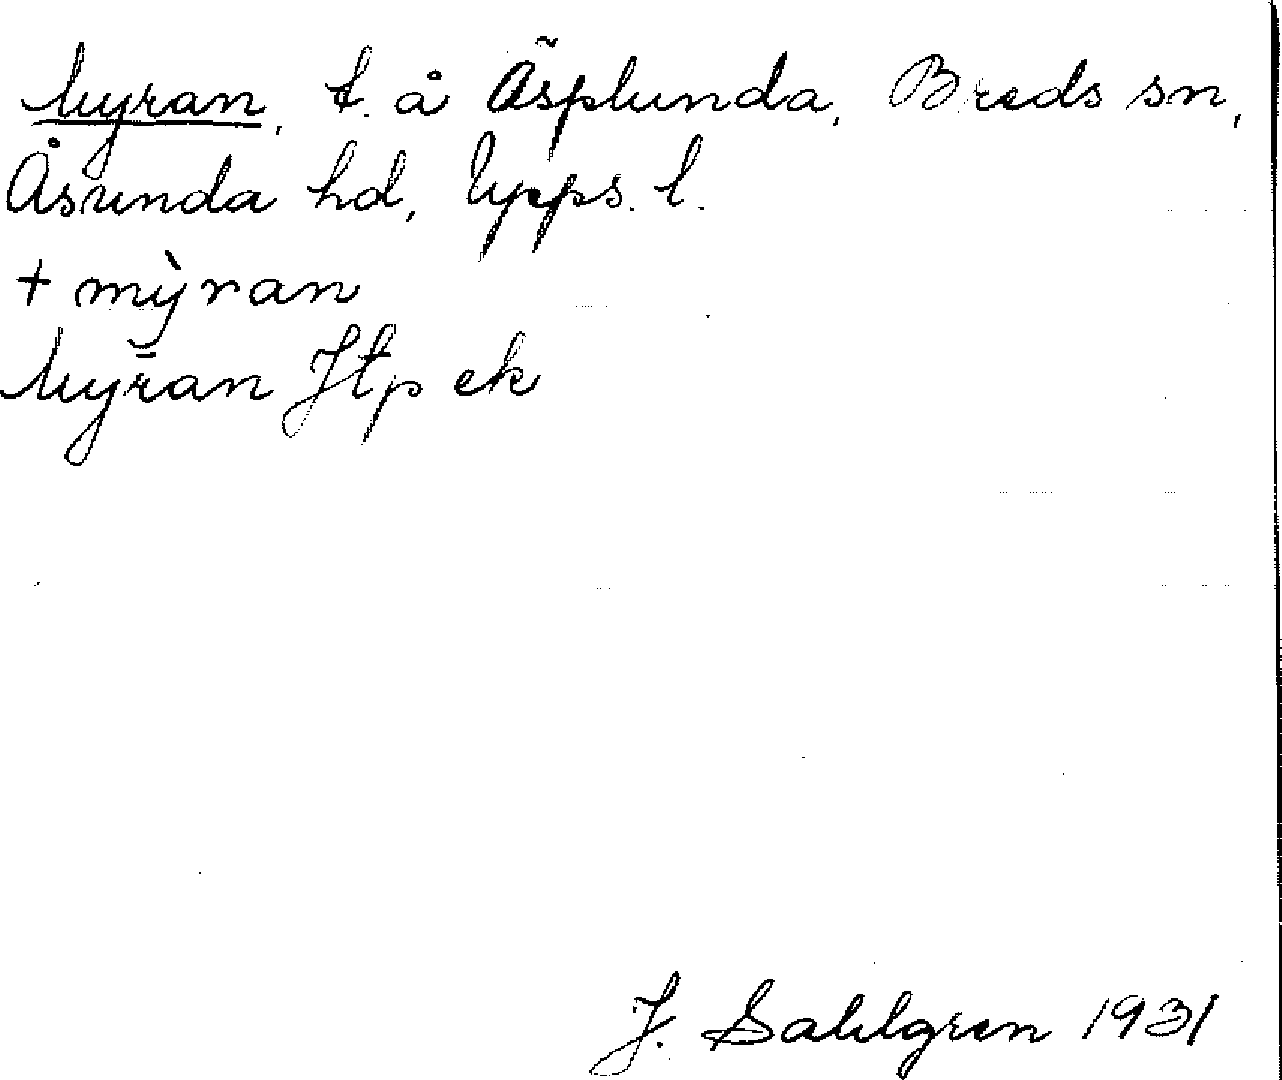 Myran, t. å Äsplunda, Breds sn,
Åsunda hd, Upps. l.
+ mỳran
Myran Jtp ek
J. Sahlgren 1931